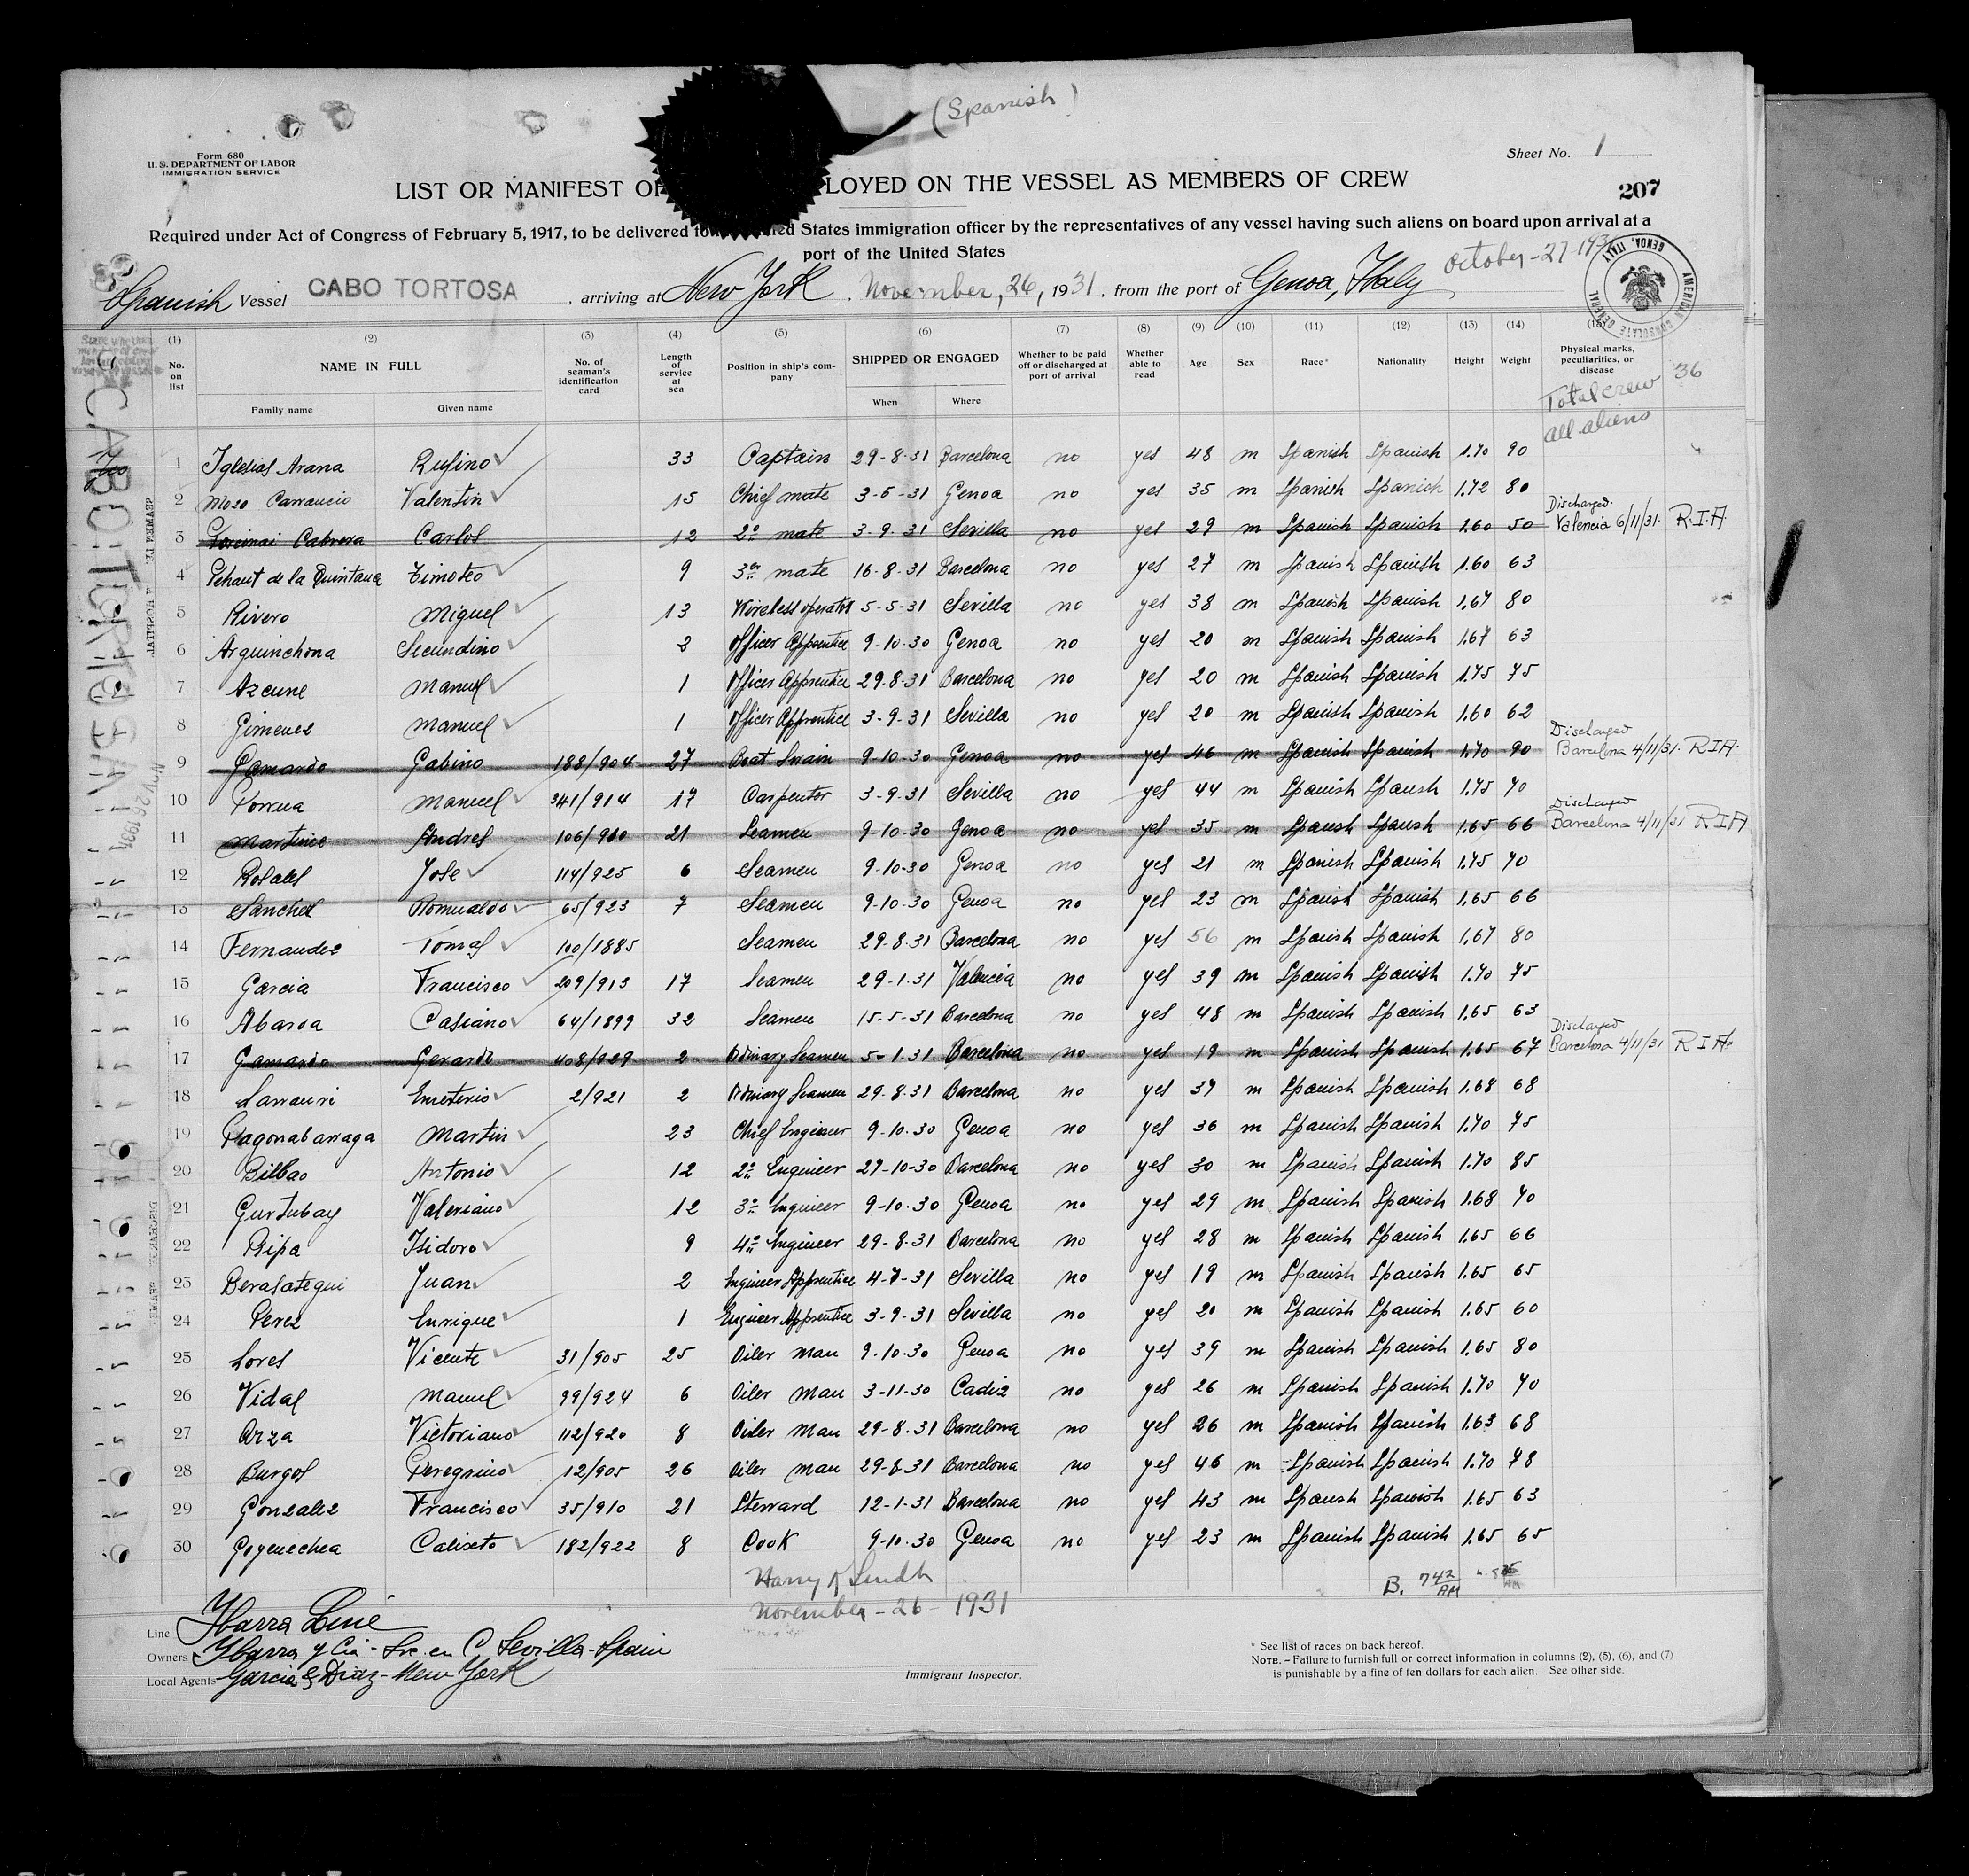 (Spanish)
Form 680
U. S. DEPARTMENT OF LABOR
IMMIGRATION SERVICE
Sheet No. 1
LIST OR MANIFEST OF LOYED ON THE VESSEL AS MEMBERS OF CREW
207
Required under Act of Congress of February 5, 1917, to be delivered to States immigration officer by the representatives of any vessel having such aliens on board upon arrival at a
port of the United States
October - 27 - 193
AMERICAN CONSULATE GENERAL GENOA, ITALY
Spanish Vessel CABO TORTOSA, arriving at New York, November, 26, 1931, from the port of Genoa, Italy
(1) (2) (3) (4) (5) (6) (7) (8) (9) (10) (11) (12) (13) (14) (15)
No. on list NAME IN FULL Family name Given name No. of seaman's identification card Length of service at sea Position in ship's company SHIPPED OR ENGAGED When Where Whether to be paid off or discharged at port of arrival Whether able to read Age Sex Race* Nationality Height Weight Physical marks, peculiarities, or disease
Total crew 36
all aliens
CABO TORTOSA
1 Iglesias Arana Rufino 33 Captain 29-8-31 Barcelona no yes 48 m Spanish Spanish 1.70 90
2 Mozo Carraucio Valentin 15 Chief mate 3-5-31 Genoa no yes 35 m Spanish Spanish 1.72 80
3 Cabrera Carlos 12 2º mate 3-9-31 Sevilla no yes 29 m Spanish Spanish 1.60 50 Discharged Valencia 6/11/31. R.I.A.
4 de la Quintana Timoteo 9 3er mate 16-8-31 Barcelona no yes 27 m Spanish Spanish 1.60 63
5 Rivero Miguel 13 Wireless operator 5-5-31 Sevilla no yes 38 m Spanish Spanish 1.67 80
6 Arguinchona Secundino 2 Officer Apprentice 9-10-30 Genoa no yes 20 m Spanish Spanish 1.67 63
7 Azcune Manuel 1 Officer Apprentice 29-8-31 Barcelona no yes 20 m Spanish Spanish 1.75 75
8 Gimenez Manuel 1 Officer Apprentice 3-9-31 Sevilla no yes 20 m Spanish Spanish 1.60 62
9 Camardo Gabino 188/904 27 Boat Swain 9-10-30 Genoa no yes 46 m Spanish Spanish 1.70 90 Discharged Barcelona 4/11/31. R.I.A.
10 Porrua Manuel 341/914 17 Carpenter 3-9-31 Sevilla no yes 44 m Spanish Spanish 1.75 70
11 Martinez Andres 106/910 21 Seamen 9-10-30 Genoa no yes 35 m Spanish Spanish 1.65 66 Discharged Barcelona 4/11/31 R.I.A
12 Rosales Jose 114/925 6 Seamen 9-10-30 Genoa no yes 21 m Spanish Spanish 1.75 70
13 Sanchez Romualdo 65/923 7 Seamen 9-10-30 Genoa no yes 23 m Spanish Spanish 1.65 66
14 Fernandez Tomas 100/1885 Seamen 29-8-31 Barcelona no yes 56 m Spanish Spanish 1.67 80
15 Garcia Francisco 209/913 17 Seamen 29-1-31 Valencia no yes 39 m Spanish Spanish 1.70 75
16 Abaroa Casiano 64/1899 32 Seamen 15-5-31 Barcelona no yes 48 m Spanish Spanish 1.65 63
17 Camardo Gerardo 408/929 2 Ordinary Seamen 5-1-31 Barcelona no yes 19 m Spanish Spanish 1.65 67 Discharged Barcelona 4/11/31 R.I.A.
18 Larrauri Emeterio 2/921 2 Ordinary Seamen 29-8-31 Barcelona no yes 37 m Spanish Spanish 1.68 68
19 Pagonabarraga Martin 23 Chief Engineer 9-10-30 Genoa no yes 36 m Spanish Spanish 1.70 75
20 Bilbao Antonio 12 2º Engineer 27-10-30 Barcelona no yes 30 m Spanish Spanish 1.70 85
21 Gurtubay Valeriano 12 3º Engineer 9-10-30 Genoa no yes 29 m Spanish Spanish 1.68 70
22 Ripa Isidoro 9 4º Engineer 29-8-31 Barcelona no yes 28 m Spanish Spanish 1.65 66
23 Berasategui Juan 2 Engineer Apprentice 4-7-31 Sevilla no yes 19 m Spanish Spanish 1.65 65
24 Perez Enrique 1 Engineer Apprentice 3-9-31 Sevilla no yes 20 m Spanish Spanish 1.65 60
25 Lores Vicente 31/905 25 Oiler man 9-10-30 Genoa no yes 39 m Spanish Spanish 1.65 80
26 Vidal Manuel 99/924 6 Oiler man 3-11-30 Cadiz no yes 26 m Spanish Spanish 1.70 70
27 Arza Victoriano 112/920 8 Oiler man 29-8-31 Barcelona no yes 26 m Spanish Spanish 1.63 68
28 Burgos Peregrino 12/905 26 Oiler man 29-8-31 Barcelona no yes 46 m Spanish Spanish 1.70 78
29 Gonzalez Francisco 35/910 21 Steward 12-1-31 Barcelona no yes 43 m Spanish Spanish 1.65 63
30 Goyenechea Calixto 182/922 8 Cook 9-10-30 Genoa no yes 23 m Spanish Spanish 1.65 65
B. 742 AM
November - 26 - 1931
Line Ybarra Line
Owners Ybarra y Cia - en C. Sevilla - Spain
Local Agents Garcia & Diaz - New York
Immigrant Inspector.
* See list of races on back hereof.
NOTE. – Failure to furnish full or correct information in columns (2), (5), (6), and (7)
is punishable by a fine of ten dollars for each alien. See other side.